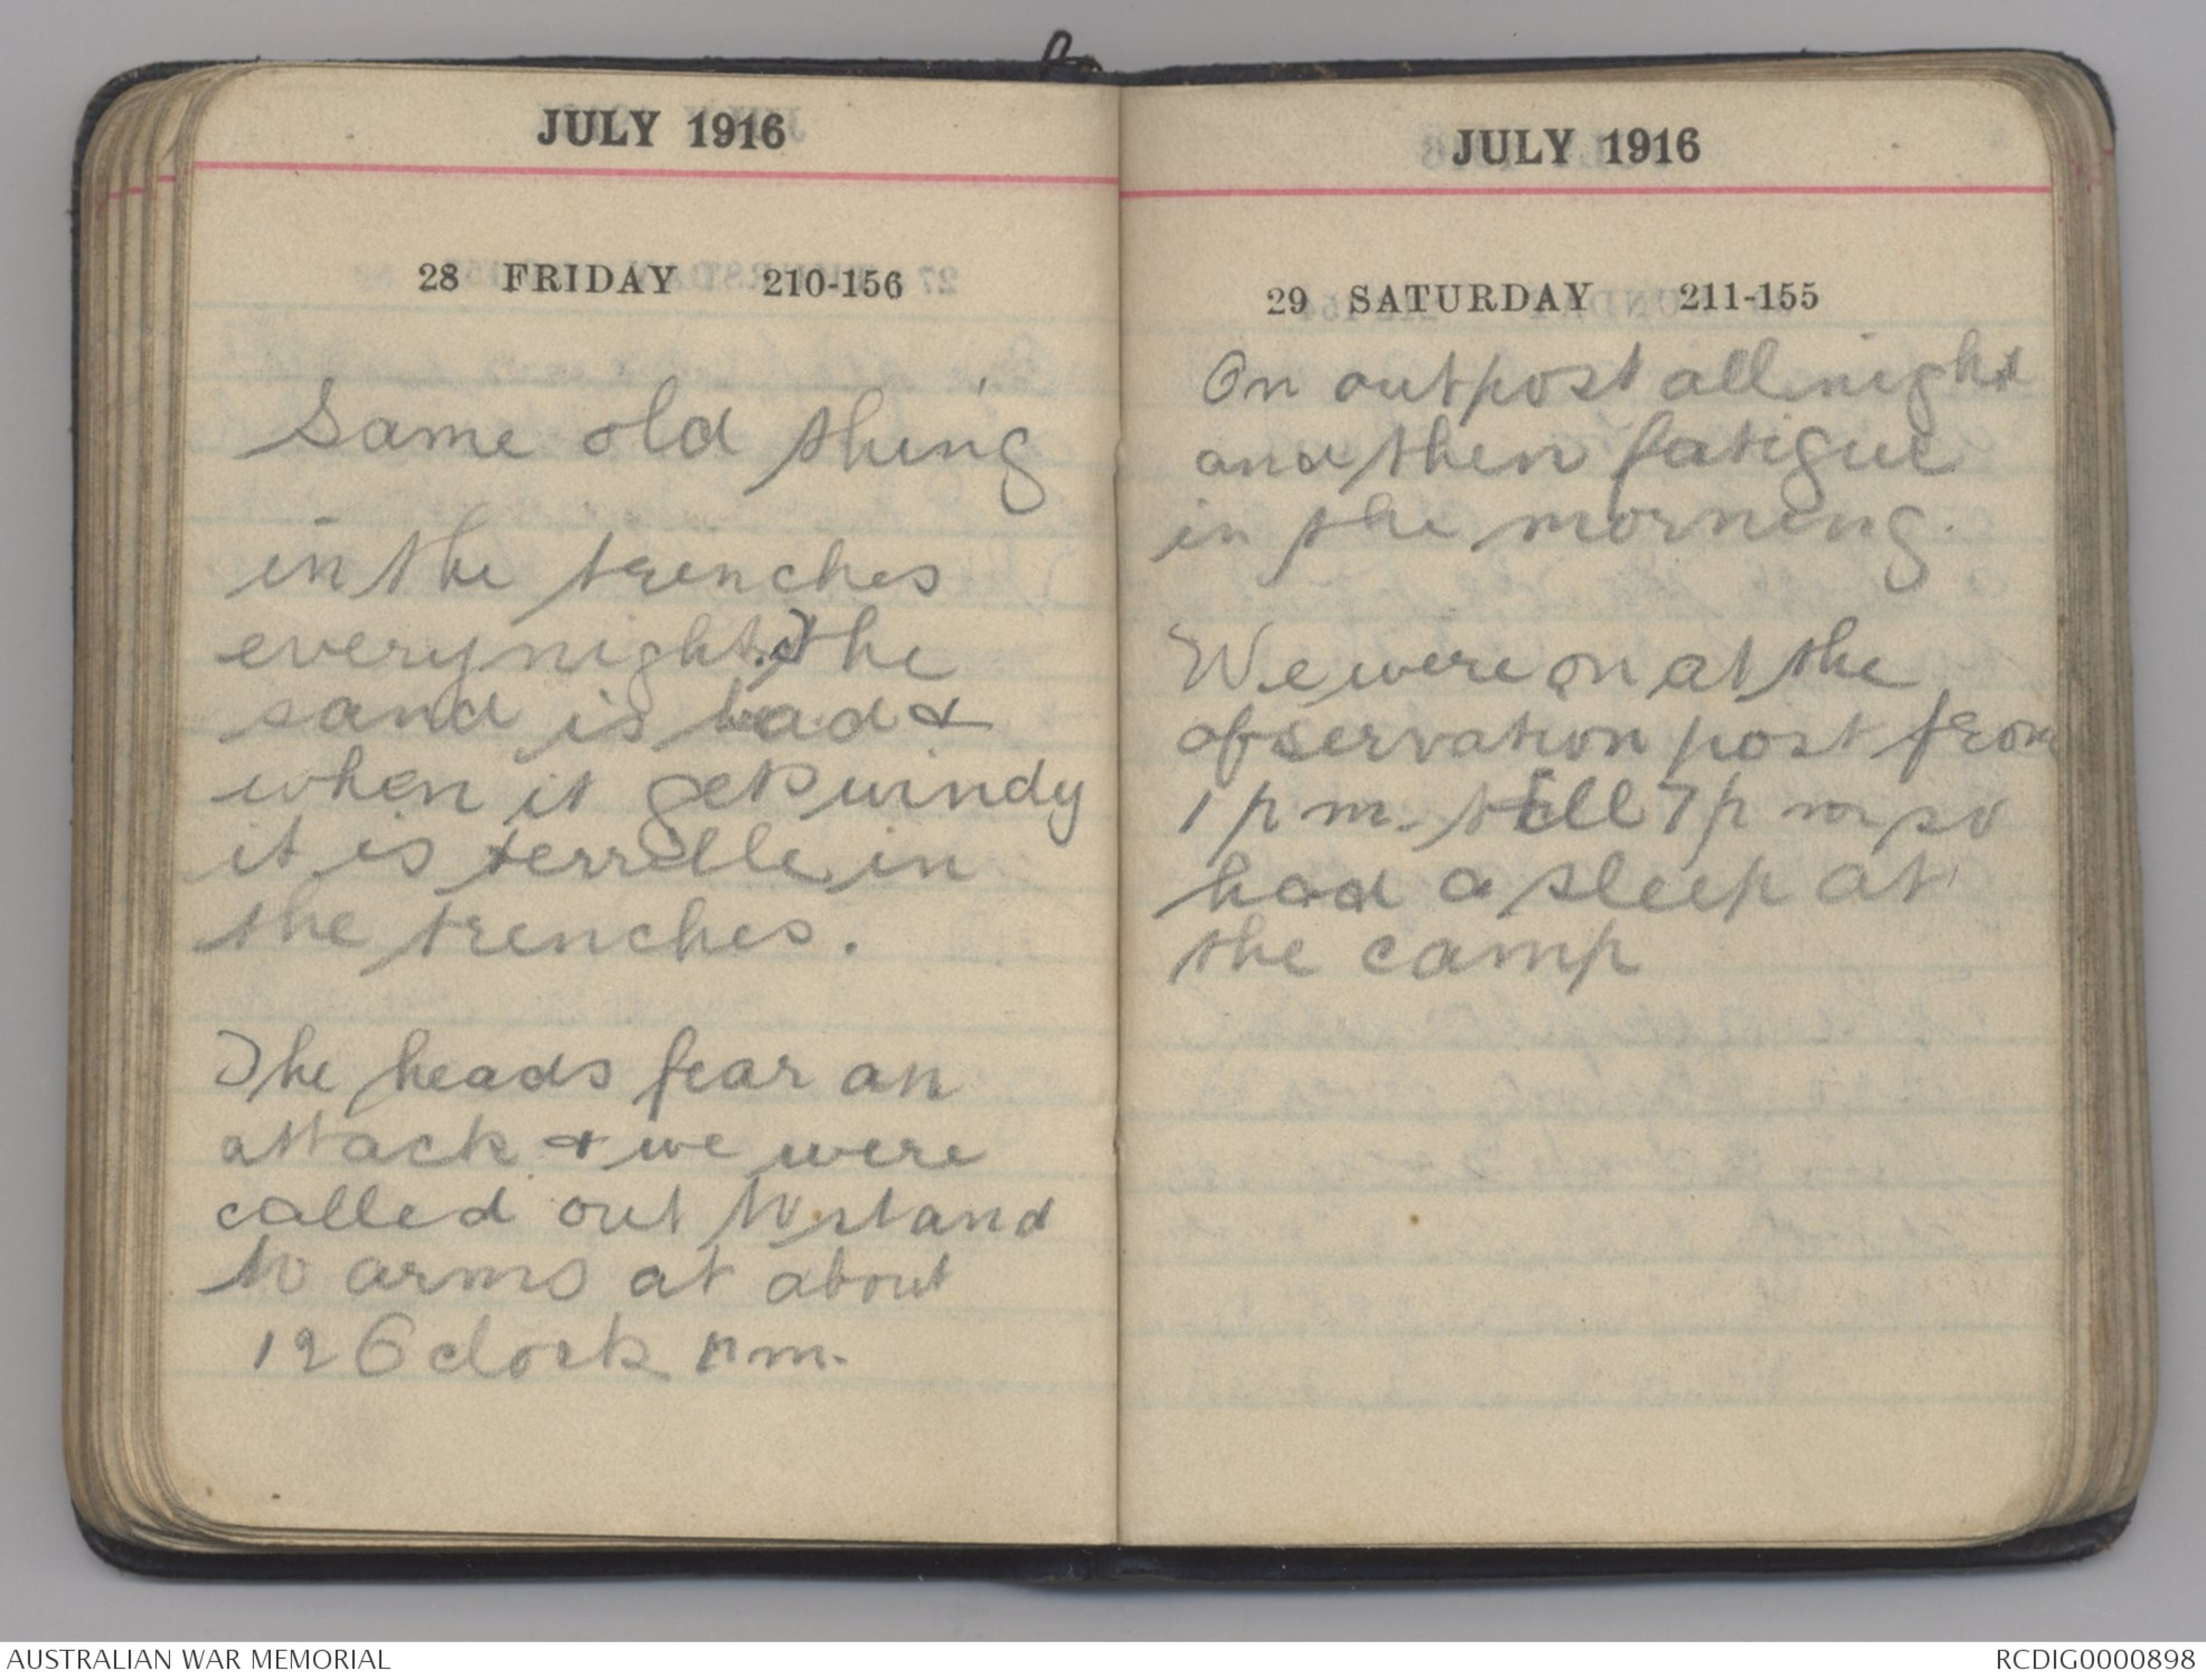 JULY 1916
28 FRIDAY 210-156
Same old thing
in the trenches
every night. The
sand is bad &
when it gets windy
it is terrible in
the trenches.
The heads fear an
attack & we were
called out to stand
to arms at about
12 Oclock pm.
JULY 1916
29 SATURDAY 211-155
On outpost all night
and then fatigue
in the morning.
We were on at the
observation post from
1 pm. till 7 pm so
had a sleep at
the camp
AUSTRALIAN WAR MEMORIAL
RCDIG0000898